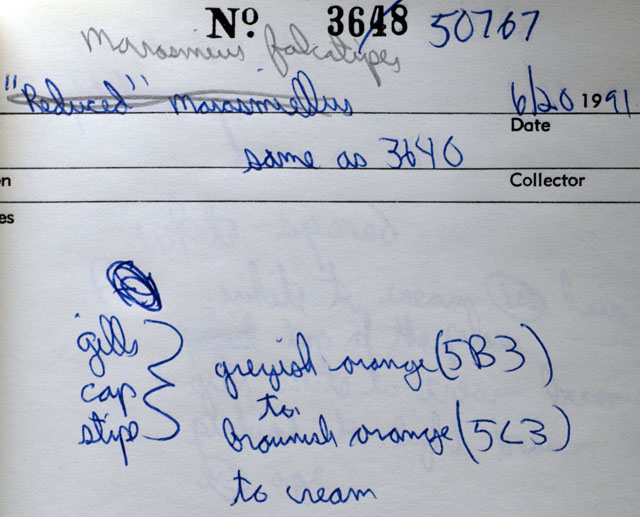 Nº. 3648 50767
Marasmius falcatipes
"Reduced" Marasmiellus 6/20 1991
Date
same as 3640
n Collector
es
gills
cap
stipe
greyish orange (5B3)
to
brownish orange (5C3)
to cream